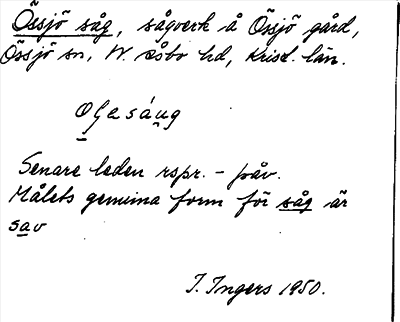 Össjö såg, sågverk å Össjö gård,
Össjö sn, N. Åsbo hd, Krist. län.
Senare leden rspr. - påv.
Målets gemena form för såg är
sav
I. Ingers 1950.